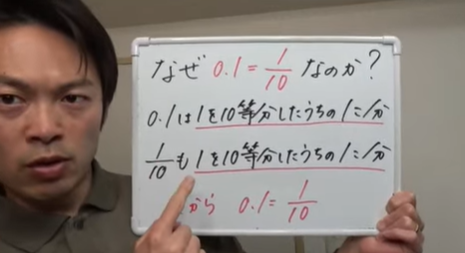 なぜ 0.1 = 1/10 なのか?
0.1は1を10等分したうちの1コ分
1/10も1を10等分したうちの1コ分
から 0.1 = 1/10